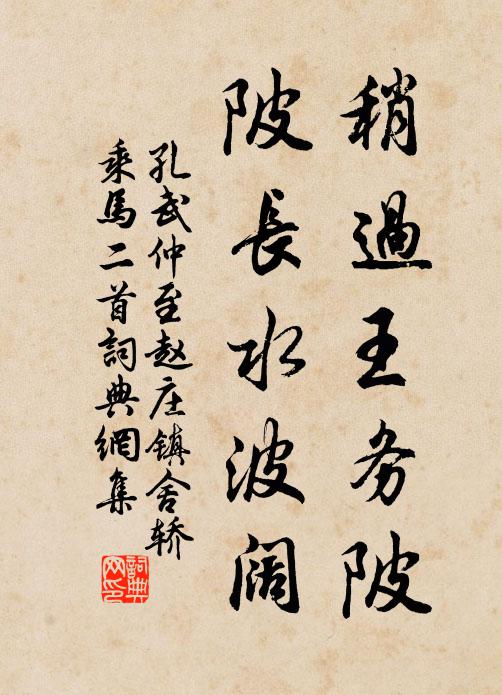 稍過王务陂
陂長水波阔
孔武仲至赵庄镇舍轿
乘馬二首詞典網集
詞典网印